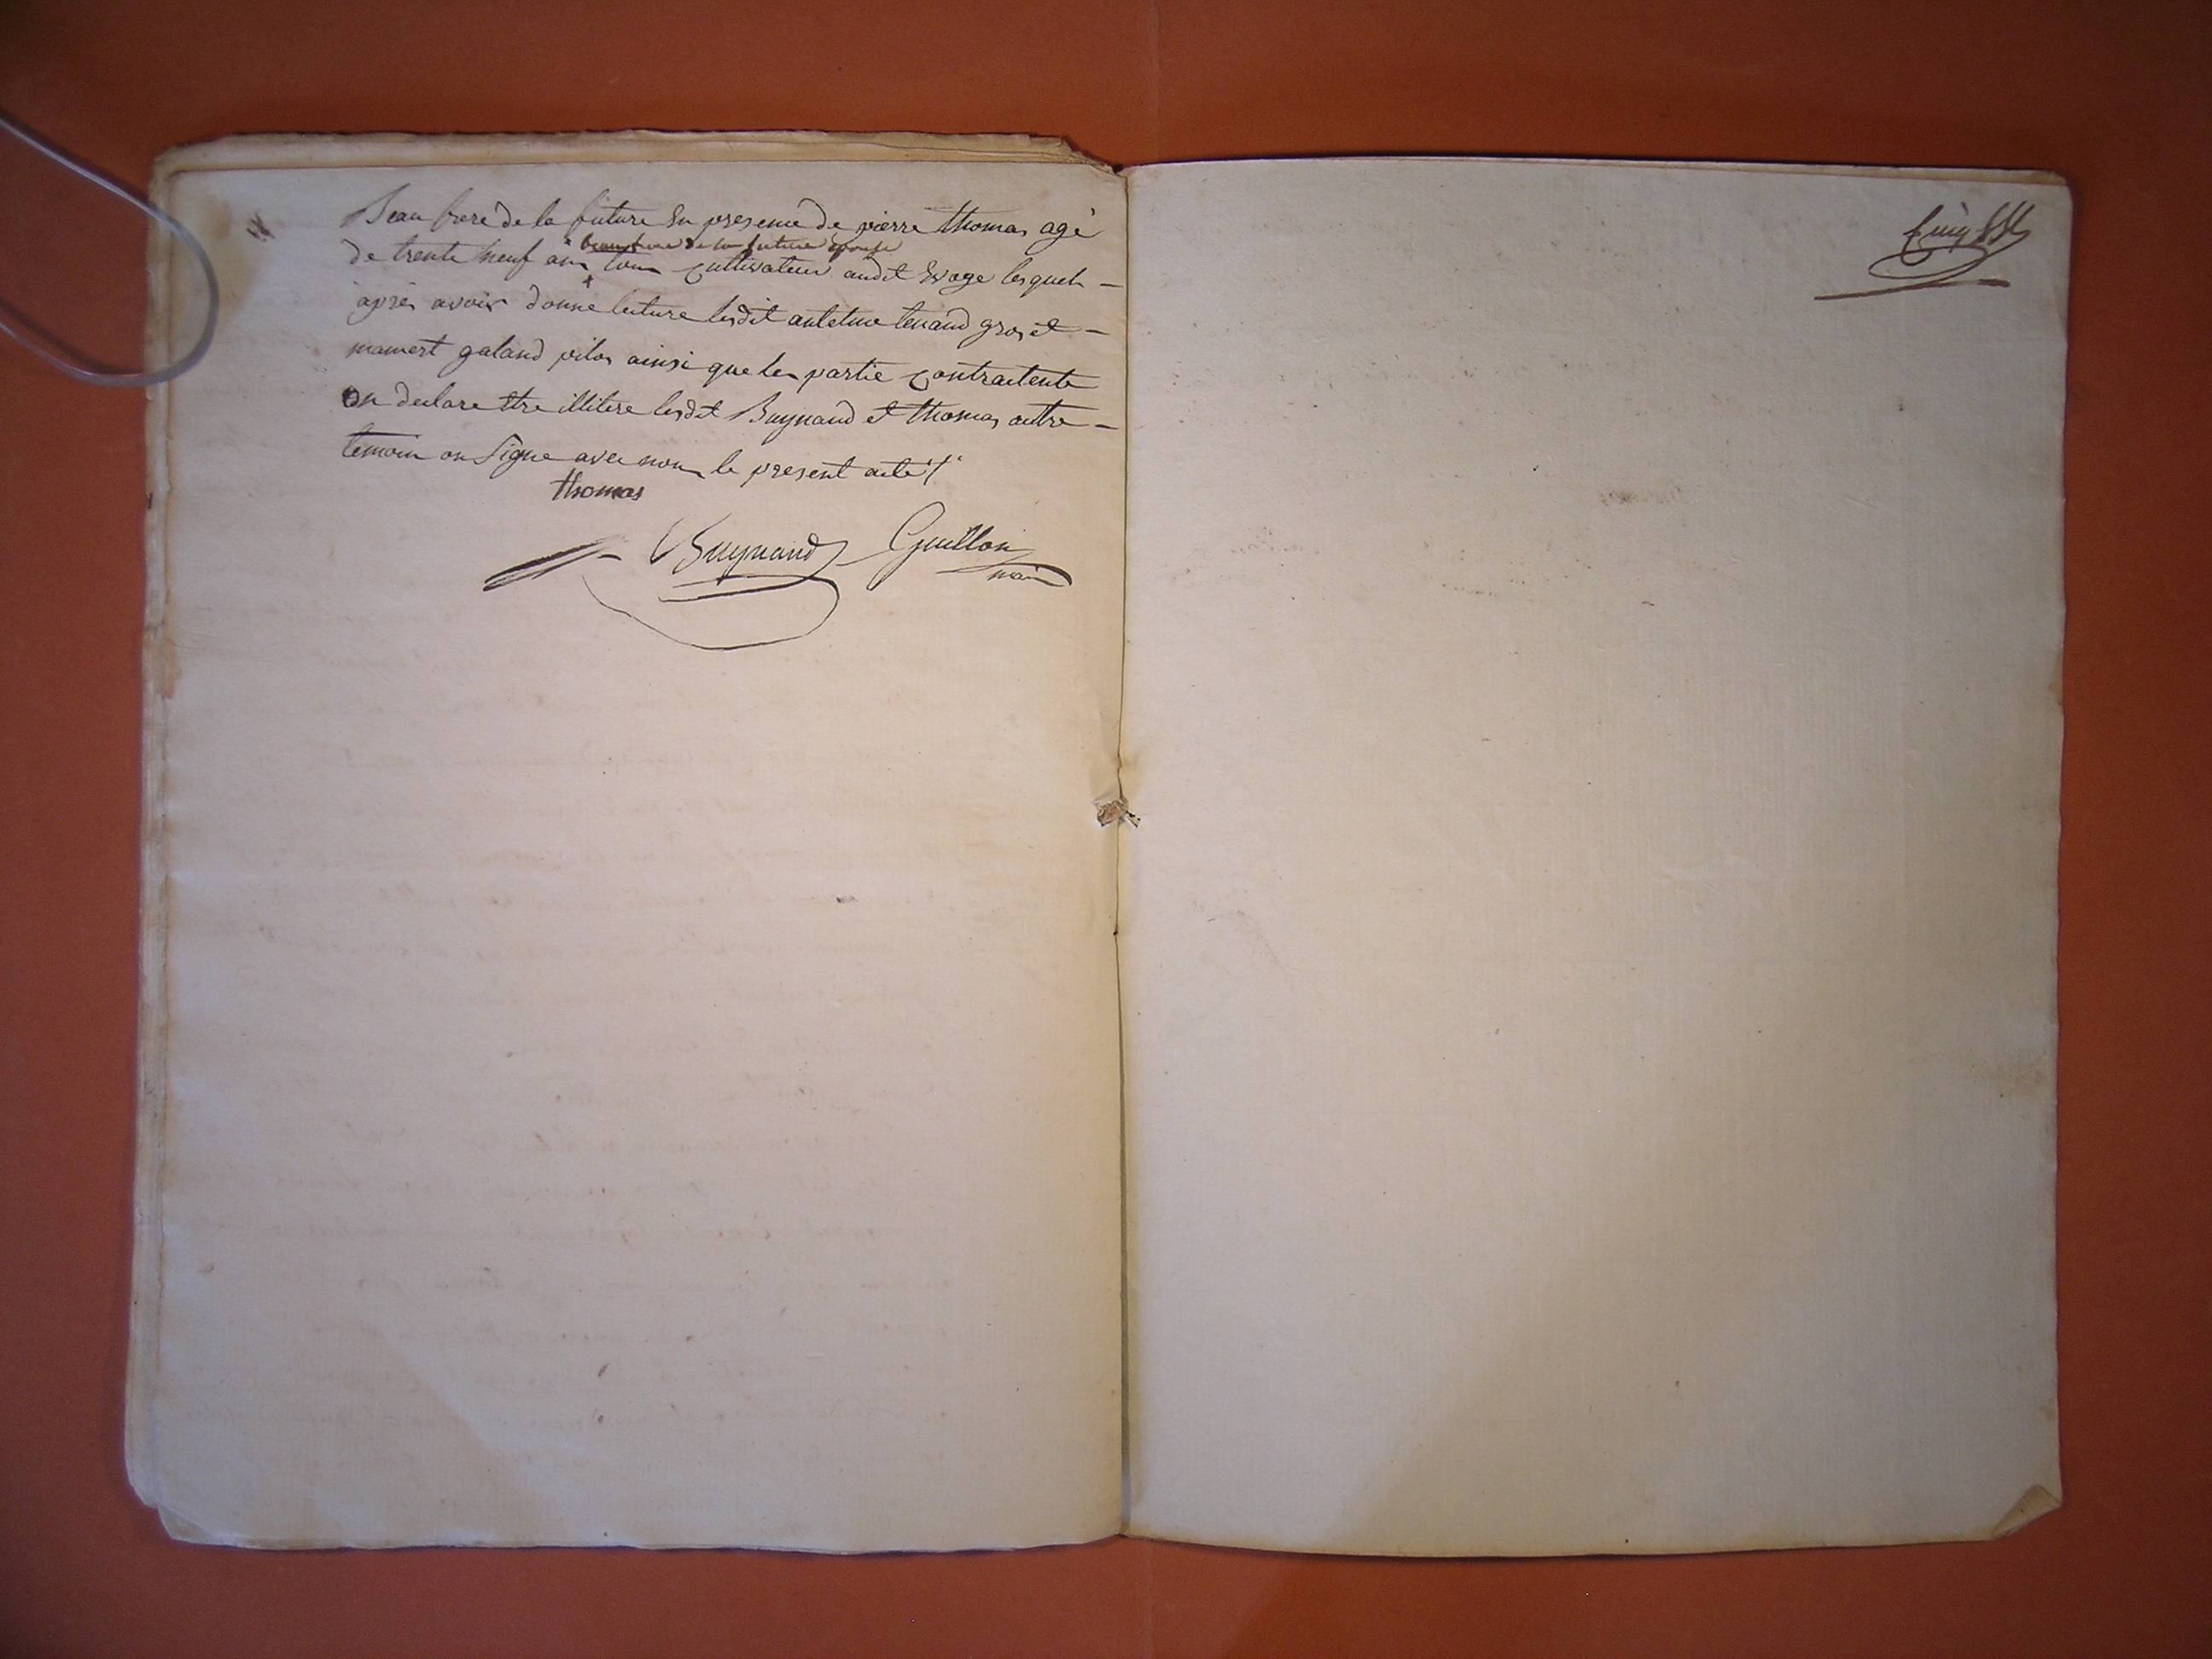 Beau frere de la future En presence de pierre thomas agé
beau frere de la future epouse
de trente neuf ans tous Cultivateur audit Evoge lesquels
après avoir donné lecture lesdit antelme tenand gros et
mamert galand pilos ainsi que les partie Contractente
On declare Etre illitere lesdit Buynand et thomas autre
temoin on Signe avec nous le present acte
thomas
Buynand Guillon
maire